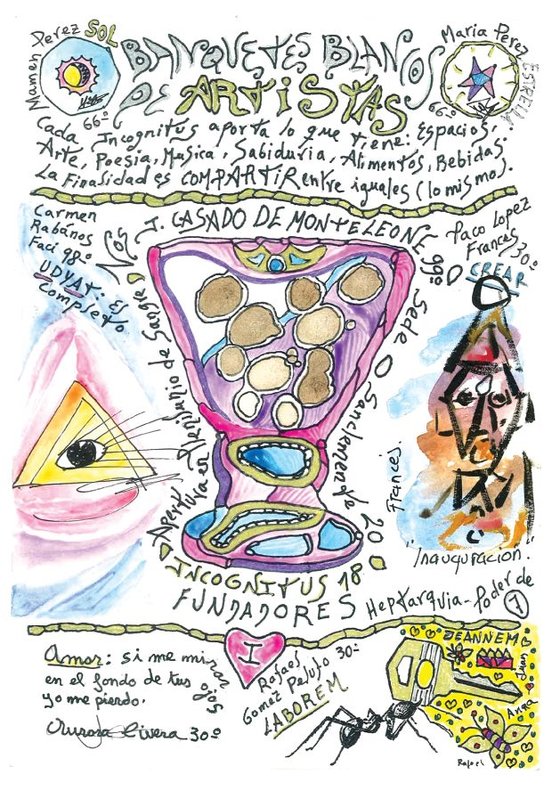 Mamen Perez SOL
66º
BANQUETES BLANCOS
DE ARTISTAS
Maria Perez
ESTRELLA
66º
Cada Incognitus aporta lo que tiene: Espacios,
Arte, Poesia, Musica, Sabiduria, Alimentos, Bebidas.
La Finalidad es COMPARTIR entre iguales (lo mismo).
Carmen
Rabanos
Faci 98º
UDYAT: Es
Completo
J. CASADO DE MONTELEONE 99º
Paco Lopez
Frances
30º
CREAR
Sede
Frances.
"Inauguracion."
INCOGNITUS 18
FUNDADORES
Heptarquia-Poder de
7
Amor: si me miran
en el fondo de tus ojos
yo me pierdo.
Aurora Olivera 30º
I
Rafael
Gomez Pelujo 30º
LABOREM
JEANNEM
Juan
Anga
Rafael